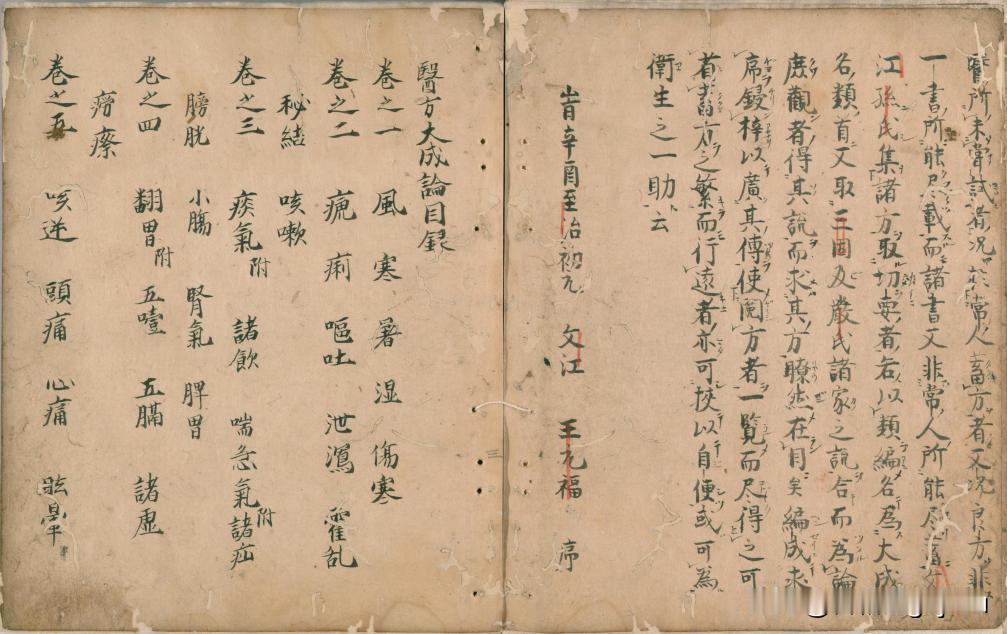 醫所未嘗試者況於常人畜方者又況良方非
一書所能尽載而諸書又非常人所能尽畜文
江孫氏集諸方取切要者各以類編名為大成
名類首又取三因及嚴氏諸家之說合而為論
庶觀者得其說而求其方瞭然在目矣編成求
席鋟梓以廣其傳使閱方者一覽而尽得之可
者畜方之繁而行遠者亦可挾以自便或可為
衛生之一助云
旹辛酉至治初元 文江 王元福 序
醫方大成論目録
卷之一 風 寒 暑 湿 傷寒
卷之二 瘧 痢 嘔吐 泄瀉 霍乱
秘結 咳嗽
卷之三 痰氣附 諸飲 喘急氣附 諸疝
膀胱 小腸 腎氣 脾胃
卷之四 翻胃附 五噎 五膈 諸虛
癆瘵
卷之五 咳逆 頭痛 心痛 眩暈